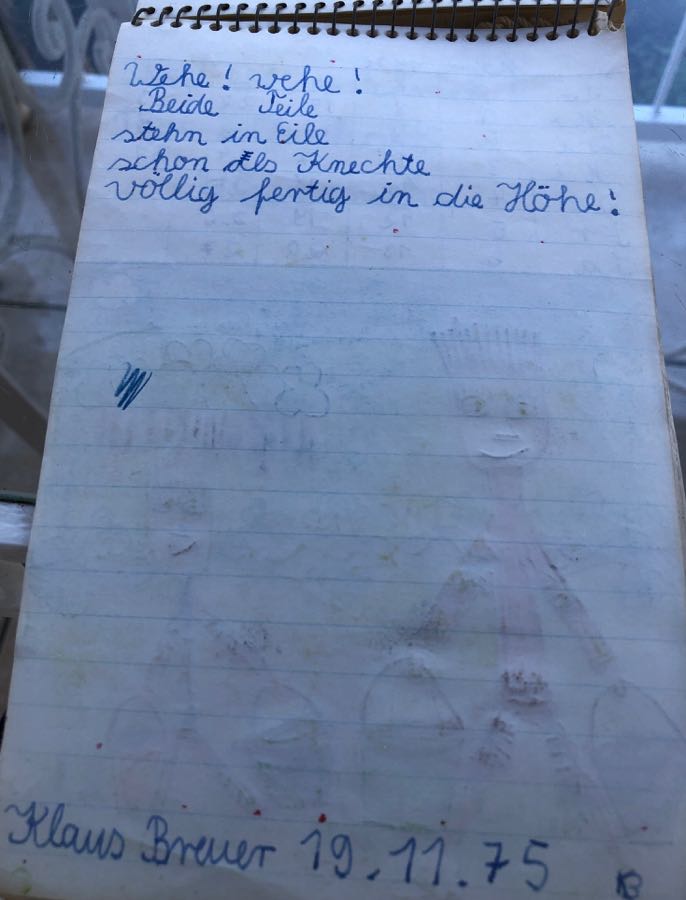 Wehe! wehe!
Beide Teile
stehn in Eile
schon als Knechte
völlig fertig in die Höhe!
Klaus Breuer 19.11.75
KB